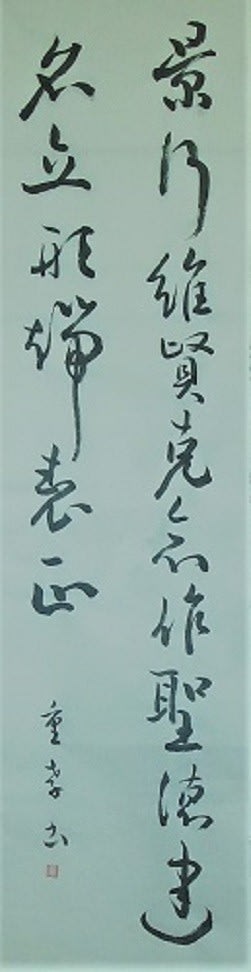 景行維賢克念作聖德建
名立形端表正
重孝書